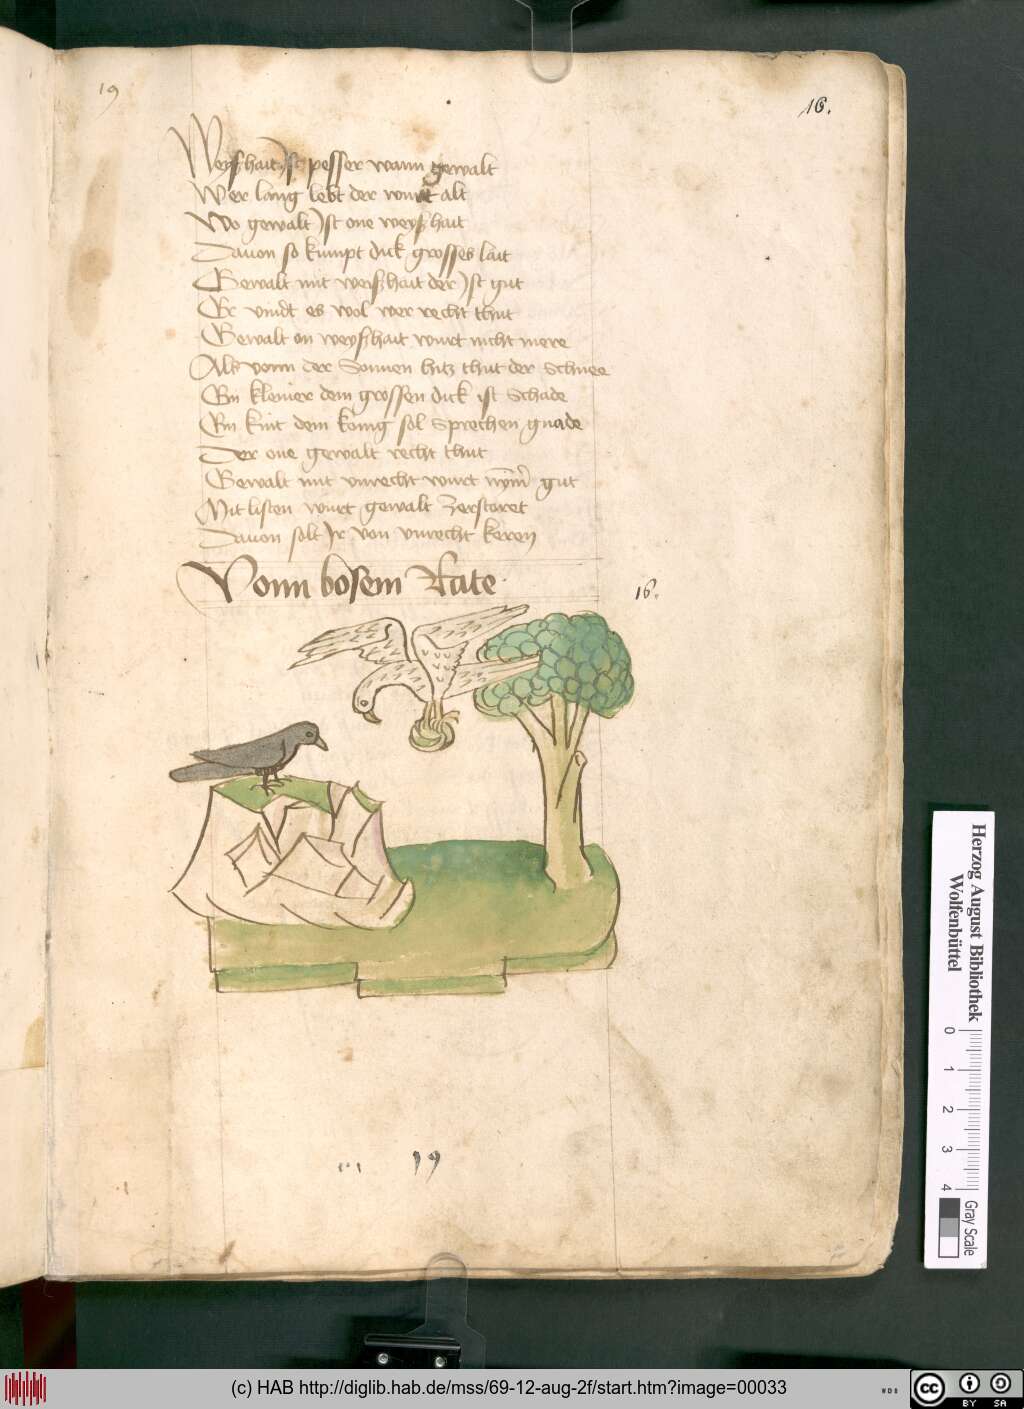 19
16.
Weyßhait Ist pesser wann gewalt
Wer lang lebt der wurt alt
Wo gewalt Ist one weyßhait
Dauon so kumpt dick grosses lait
Gewalt mit weißhait der Ist gut
Er vindt es wol wer recht thut
Gewalt on weyßhait wurt nicht mere
Als vonn der Sonnen hitz thut der Schnee
Ein kleiner dem grossen dick ist Schade
Ein kint dem konig sol Sprechen gnade
Der one gewalt recht thut
Gewalt mit vnrecht wurt nym̄er gut
Mit listen wurt gewalt Zerstoret
Dauon solt Ir von vnrecht keren
Vonn bosem Rate
16.
19
Herzog August Bibliothek
Wolfenbüttel
0 1 2 3 4
Gray Scale
(c) HAB http://diglib.hab.de/mss/69-12-aug-2f/start.htm?image=00033
WDB
cc BY SA